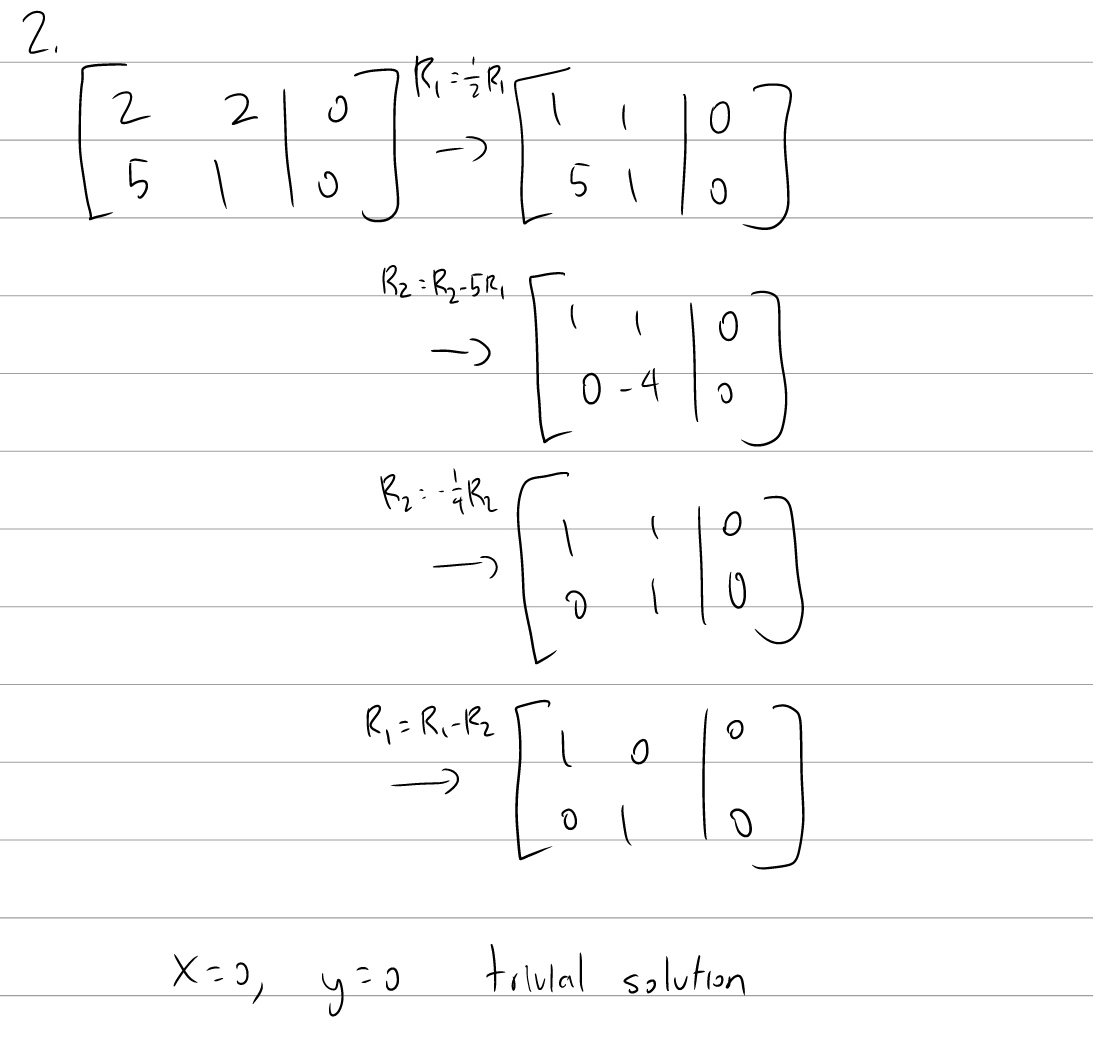 2.
[2 2 | 0] R₁=½R₁ [1 1 | 0]
[5 1 | 0] → [5 1 | 0]
R₂=R₂-5R₁ [1 1 | 0]
→ [0 -4 | 0]
R₂=-¼R₂ [1 1 | 0]
→ [0 1 | 0]
R₁=R₁-R₂ [1 0 | 0]
→ [0 1 | 0]
x=0, y=0 trivial solution